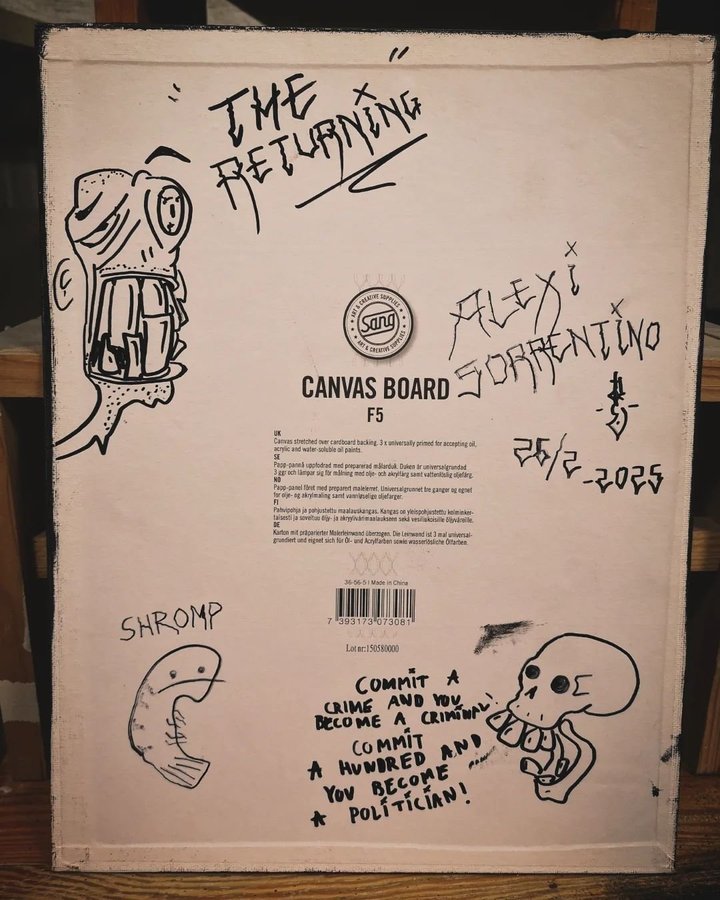 THE
RETURNING
ALEXI
SORRENTINO
26/2-2025
ART & CREATIVE SUPPLIES
Sang
ART & CREATIVE SUPPLIES
CANVAS BOARD
F5
UK
Canvas stretched over cardboard backing. 3 x universally primed for accepting oil,
acrylic and water-soluble oil paints.
SE
Papp-pannå uppfodrad med preparerad målarduk. Duken är universalgrundad
3 ggr och lämpar sig för målning med olje- och akrylfärg samt vattenlöslig oljefärg.
NO
Papp-panel fôret med preparert malelerret. Universalgrunnet tre ganger og egnet
for olje- og akrylmaling samt vannløselige oljefarger.
FI
Pahvipohja ja pohjustettu maalauskangas. Kangas on yleispohjustettu kolminker-
taisesti ja soveltuu öljy- ja akryylivärimaalaukseen sekä vesiliukoisille öljyväreille.
DE
Karton mit präparierter Malerleinwand überzogen. Die Leinwand ist 3 mal universal-
grundiert und eignet sich für Öl- und Acrylfarben sowie wasserlösliche Ölfarben.
36-56-5 | Made in China
7 393173 073081
Lot nr:150580000
SHROMP
COMMIT A
CRIME AND YOU
BECOME A CRIMINAL
COMMIT
A HUNDRED AND
YOU BECOME
A POLITICIAN!